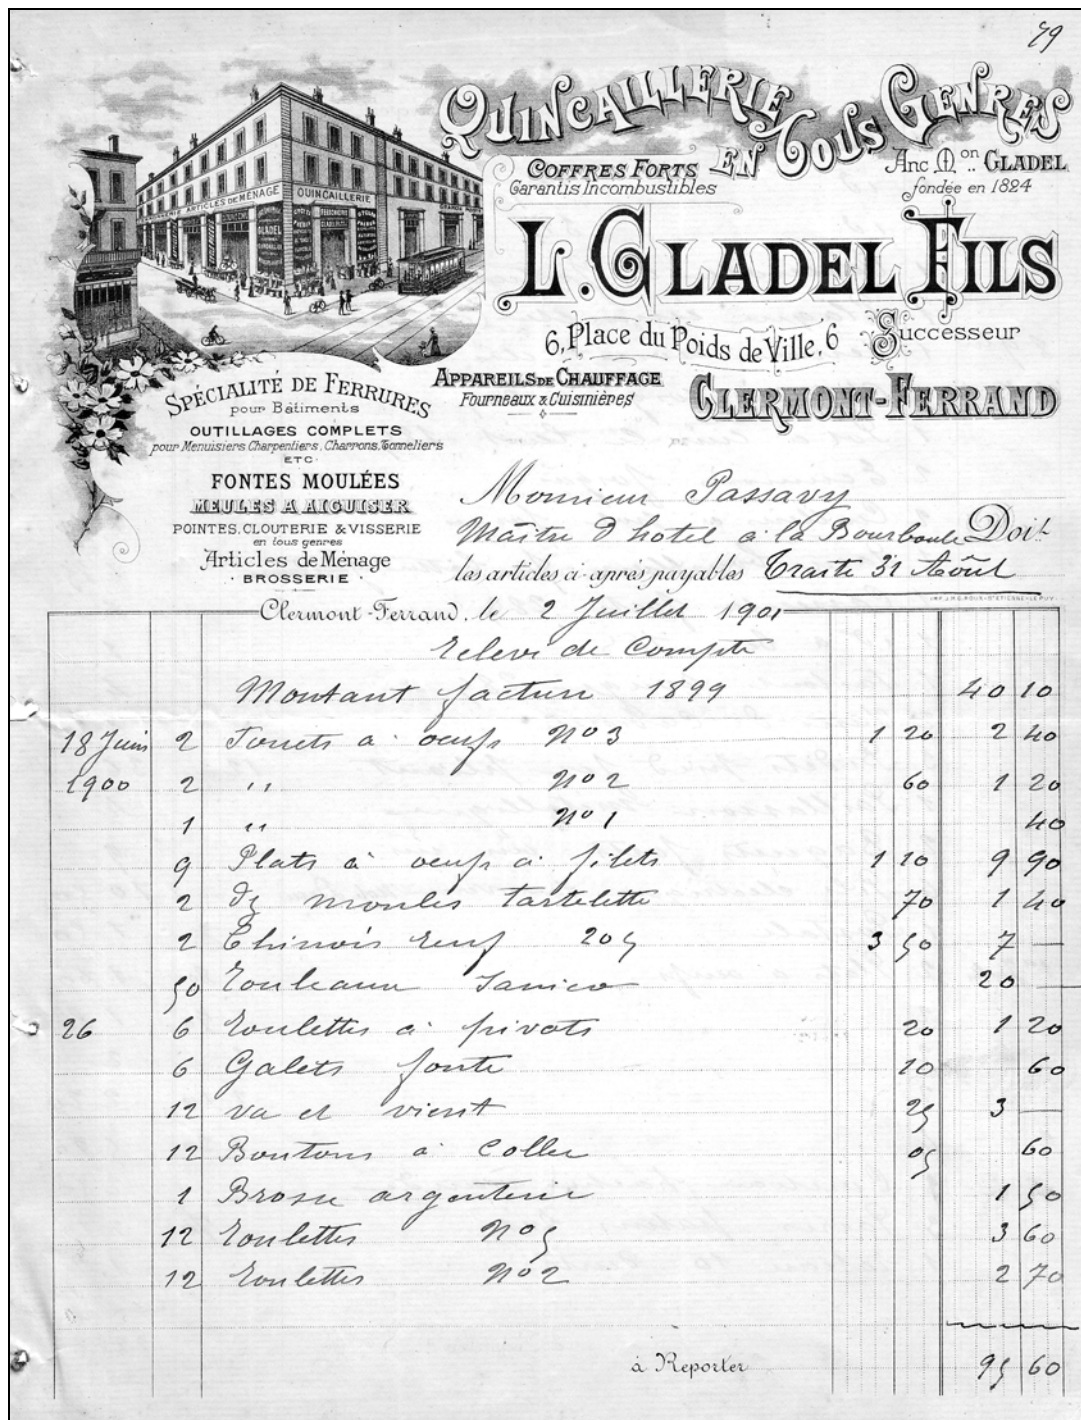 79
QUINCAILLERIE EN TOUS GENRES
COFFRES FORTS
Garantis Incombustibles
Anc. Mon. GLADEL
fondée en 1824
L. GLADEL FILS
6, Place du Poids de Ville, 6
Successeur
CLERMONT-FERRAND
APPAREILS DE CHAUFFAGE
Fourneaux & Cuisinières
ARTICLES DE MÉNAGE
QUINCAILLERIE
GLADEL
SPÉCIALITÉ DE FERRURES
pour Bâtiments
OUTILLAGES COMPLETS
pour Menuisiers, Charpentiers, Charrons, Tonneliers
ETC.
FONTES MOULÉES
MEULES A AIGUISER
POINTES, CLOUTERIE & VISSERIE
en tous genres
Articles de Ménage
· BROSSERIE ·
Monsieur Passavy
Maître d'hotel a la Bourboule Doit
les articles ci-après payables Traite 31 Août
Clermont-Ferrand, le 2 Juillet 1901
Relevé de Compte
Montant facture 1899 40 10
18 Juin 2 à oeufs No 3 1 20 2 40
1900 2 " No 2 60 1 20
1 " No 1 40
9 Plats à oeufs à filets 1 10 9 90
2 Dz moules tartelette 70 1 40
2 Chinois renf 205 3 50 7 —
50 Rouleaux 20 —
26 6 Roulettes à pivots 20 1 20
6 Galets fonte 10 60
12 va et vient 25 3 —
12 Boutons à coller 05 60
1 Brosse argenterie 1 50
12 Roulettes No 5 3 60
12 Roulettes No 2 2 70
à Reporter 95 60